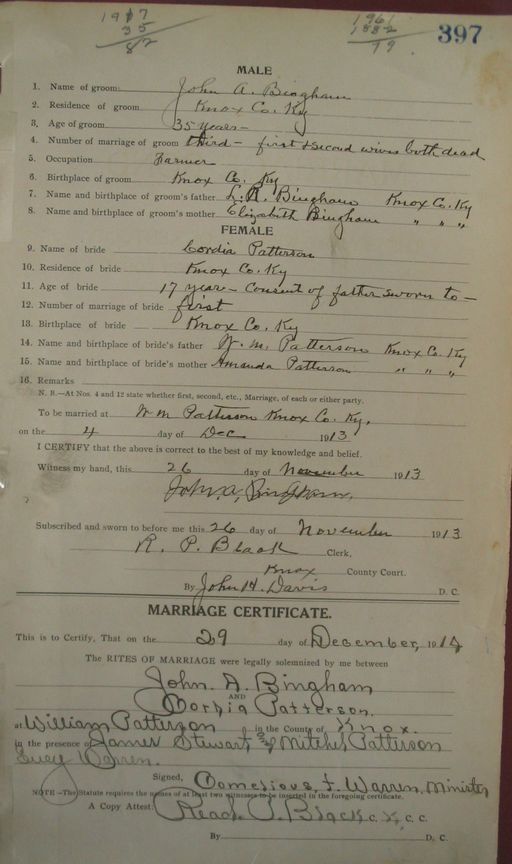 1917 1961
35 1882
82 79
397
MALE
1. Name of groom: John A. Bingham
2. Residence of groom Knox Co. Ky
3. Age of groom 35 years -
4. Number of marriage of groom third - first & second wives both dead
5. Occupation Farmer
6. Birthplace of groom Knox Co. Ky
7. Name and birthplace of groom's father L. R. Bingham Knox Co. Ky
8. Name and birthplace of groom's mother Elizabeth Bingham " " "
FEMALE
9. Name of bride Cordia Patterson
10. Residence of bride Knox Co. Ky
11. Age of bride 17 years - Consent of father sworn to -
12. Number of marriage of bride first
13. Birthplace of bride Knox Co. Ky
14. Name and birthplace of bride's father W. M. Patterson Knox Co. Ky
15. Name and birthplace of bride's mother Amanda Patterson " " "
16. Remarks
N. B.—At Nos. 4 and 12 state whether first, second, etc., Marriage, of each or either party.
To be married at W M Patterson Knox Co. Ky.
on the 4 day of Dec 1913
I CERTIFY that the above is correct to the best of my knowledge and belief.
Witness my hand, this 26 day of November 1913
John A. Bingham.
Subscribed and sworn to before me this 26 day of November 1913
R. P. Black Clerk,
Knox County Court.
By John H. Davis D. C.
MARRIAGE CERTIFICATE.
This is to Certify, That on the 29 day of December, 191
The RITES OF MARRIAGE were legally solemnized by me between
John. A. Bingham
AND
Cordia Patterson.
at William Patterson in the County of Knox.
in the presence of James Stewart & Mitchel Patterson
Warren.
Signed, F. Warren, Minister
NOTE—The Statute requires the names of at least two witnesses to be inserted in the foregoing certificate.
A Copy Attest: Read P. Black, C. C. C.
By D. C.